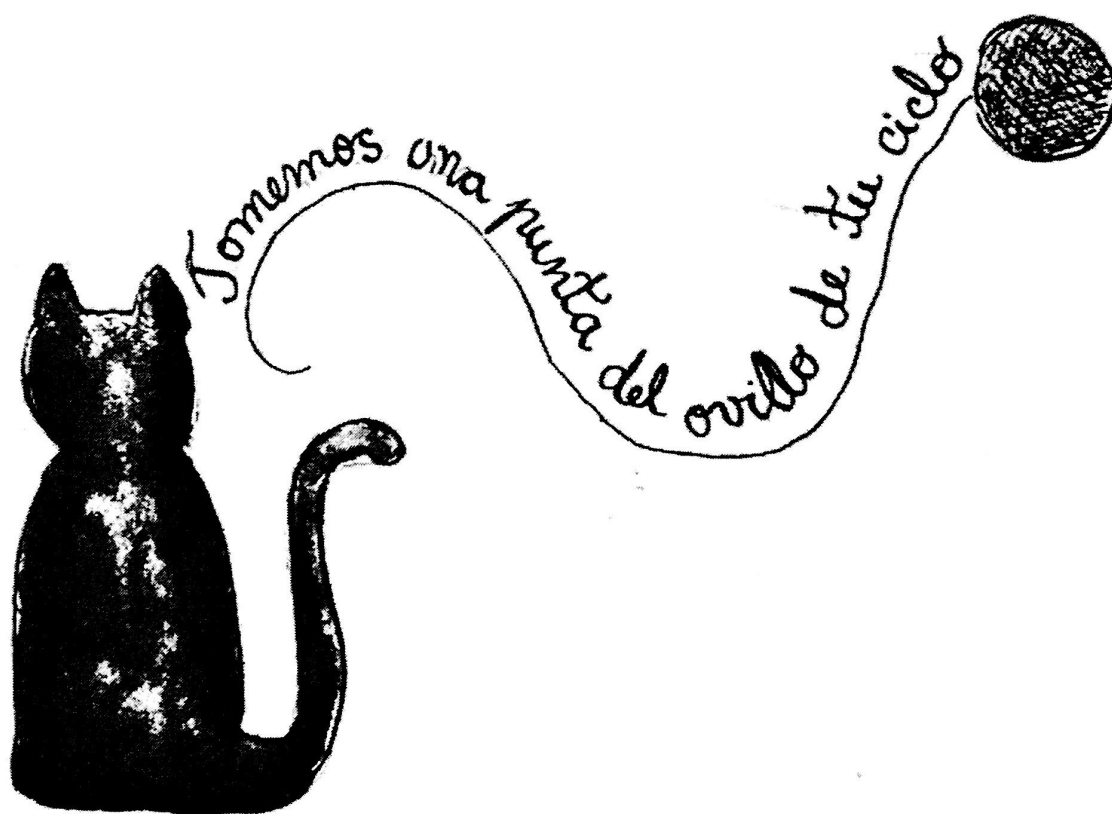 Tomemos una punta del ovillo de tu ciclo